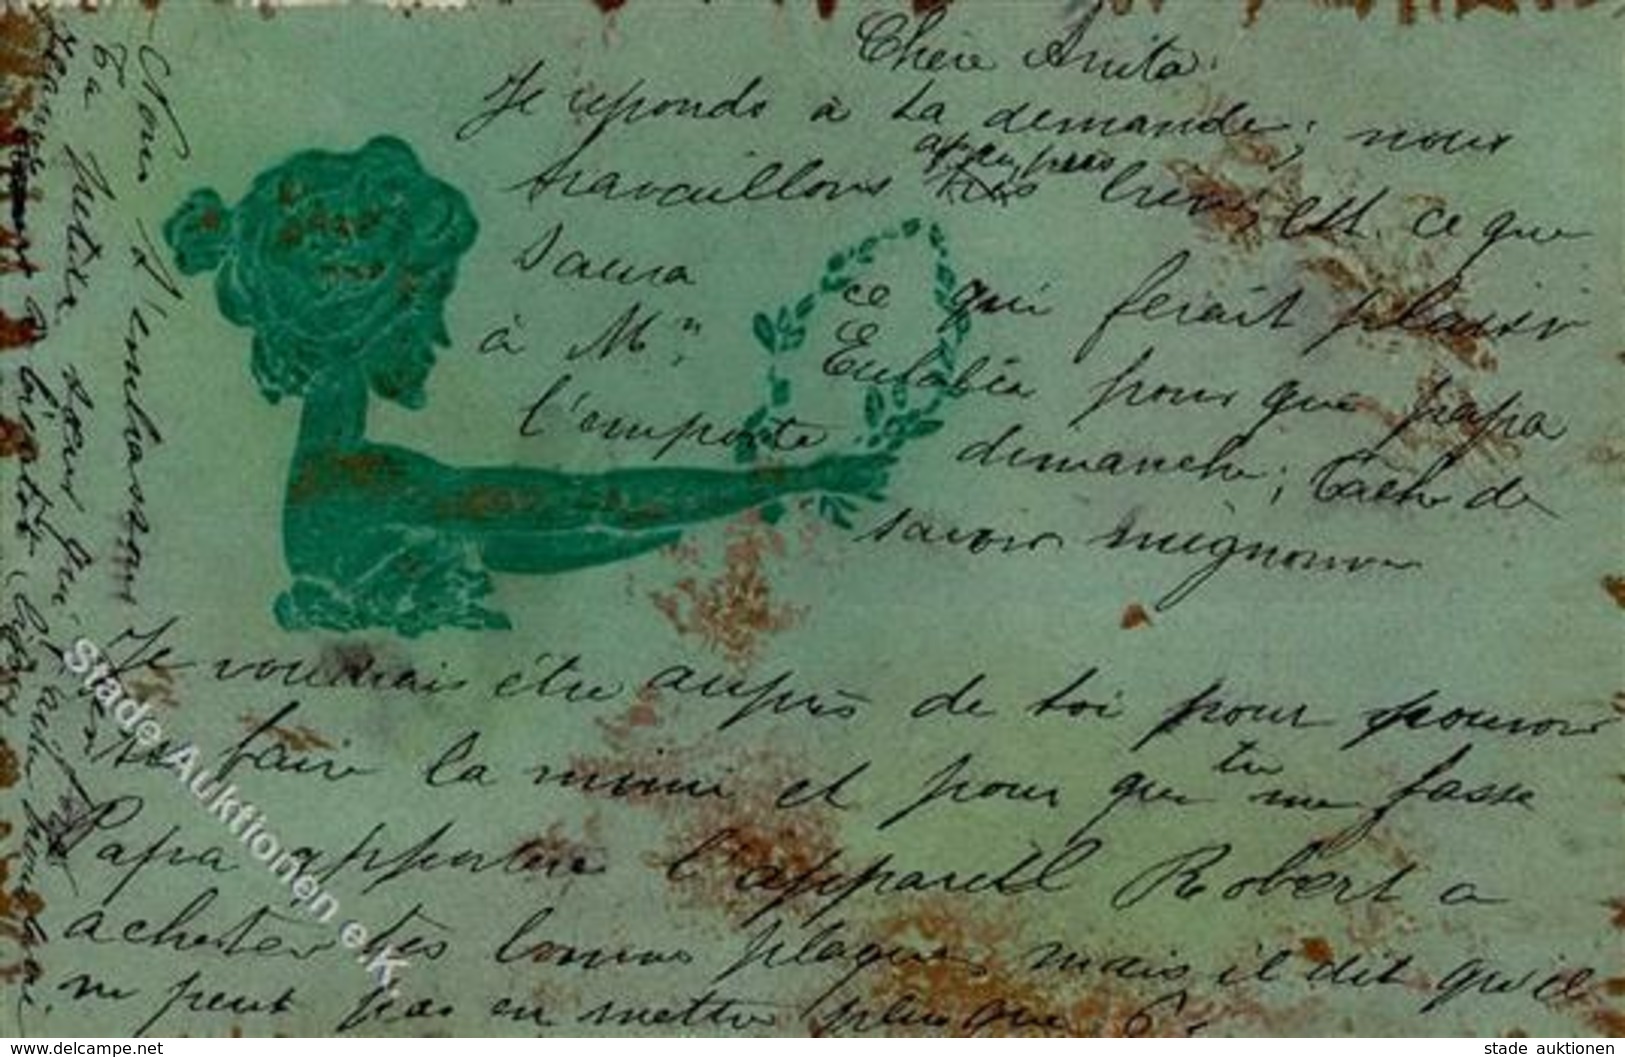 Chère Anita.
Je reponds à ta demande; nous
à peu près
travaillons très bien, est ce que
saura ce qui ferait plaisir
à Mn. Eulalie pour que papa
l'emporte dimanche; Tache de
savoir mignonne
Je voudrais être auprès de toi pour pouvoir
faire la mienne et pour que tu me fasse
Papa apporter l'appareil Robert a
acheter des bonnes plaques mais il dit qu'il
ne peut pas en mettre plus que 6.
Nous t'embrassons
Ta petite soeur qui
Stade Auktionen e.K.
www.delcampe.net
stade auktionen